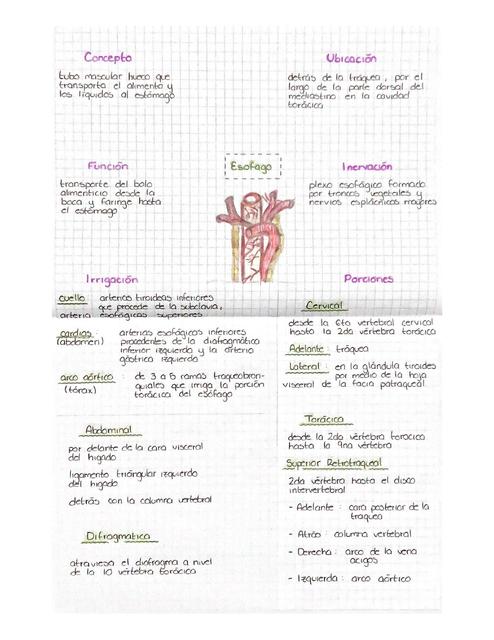 Concepto
tubo muscular hueco que
transporta el alimento y
los líquidos al estómago
Ubicación
detrás de la tráquea, por el
largo de la parte dorsal del
mediastino en la cavidad
torácica
Función
transporte del bolo
alimenticio desde la
boca y faringe hasta
el estómago
Esofago
Inervación
plexo esofágico formado
por troncos vegetales y
nervios esplácnicos mayores
Irrigación
cuello arterias tiroideas inferiores
que procede de la subclavia,
arteria esofágicas superiores
cardias : arterias esofágicas inferiores
(abdomen) procedentes de la diafragmática
inferior izquierda y la arteria
gástrica izquierda
arco aórtico : de 3 a 5 ramas traqueobron-
(tórax) quiales que irriga la porción
torácica del esófago
Porciones
Cervical
desde la 6ta vertebral cervical
hasta la 2da vértebra torácica
Adelante : tráquea
Lateral : en la glándula tiroides
por medio de la hoja
visceral de la facia patraqueal.
Abdominal
por delante de la cara visceral
del higado
ligamento triángular izquierdo
del higado
detrás con la columna vertebral
Difragmatica
atraviesa el diafragma a nivel
de la 10 vértebra torácica
Torácica
desde la 2da vértebra toracica
hasta la 9na vertebra
Superior Retrotraqueal
2da vértebra hasta el disco
intervertebral
- Adelante : cara posterior de la
traquea
- Atrás : columna vertebral
- Derecha : arco de la vena
acigos
- Izquierda : arco aórtico